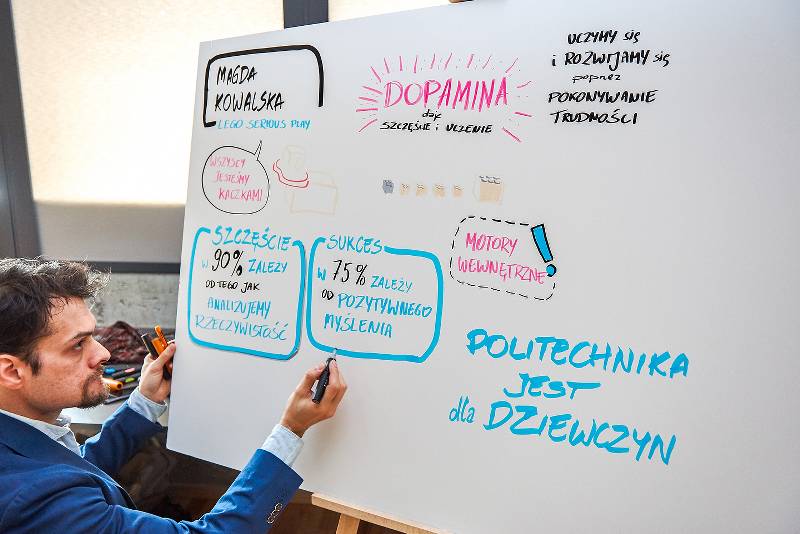 MAGDA
KOWALSKA
LEGO SERIOUS PLAY
DOPAMINA
daje
SZCZĘŚCIE i UCZENIE
UCZYMY się
i ROZWIJAMY się
poprzez
POKONYWANIE
TRUDNOŚCI
WSZYSCY
JESTEŚMY
KACZKAMI
SZCZĘŚCIE
W 90% ZALEŻY
OD TEGO JAK
ANALIZUJEMY
RZECZYWISTOŚĆ
SUKCES
W 75% ZALEŻY
OD POZYTYWNEGO
MYŚLENIA
MOTORY
WEWNĘTRZNE!
POLITECHNIKA
JEST
dla DZIEWCZYN